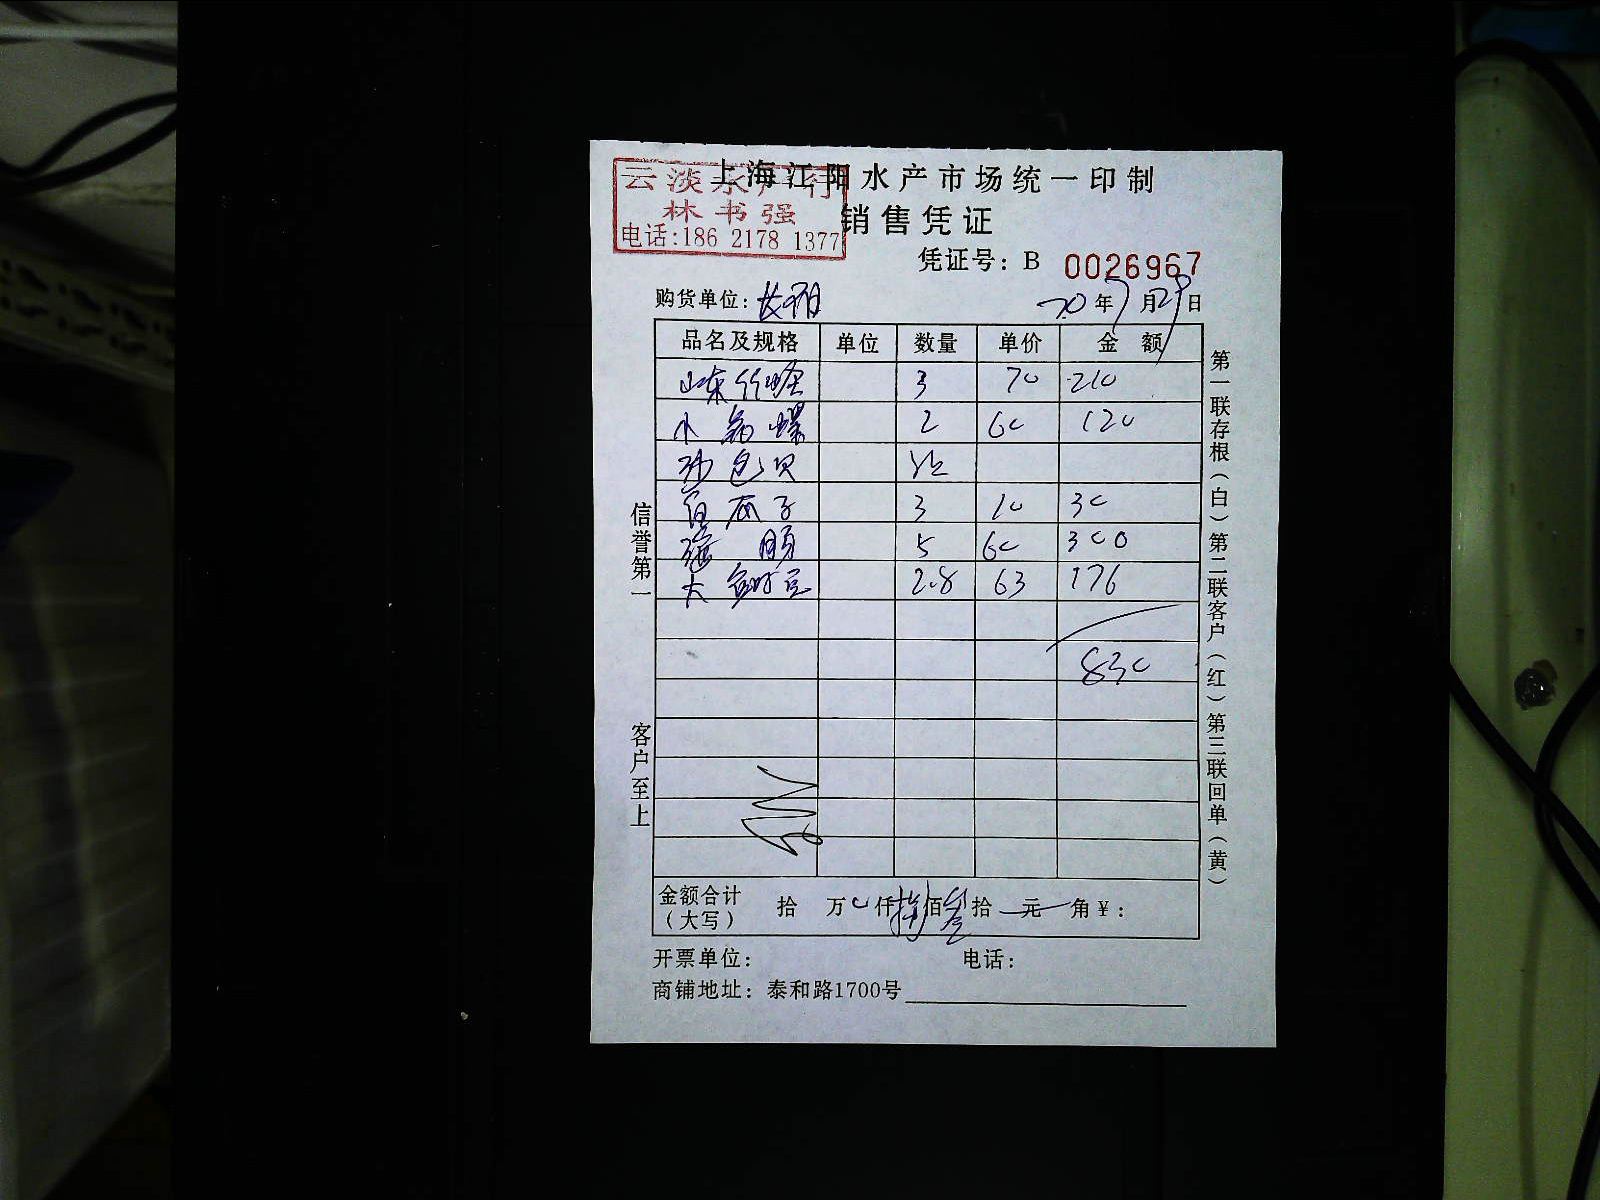 上海江阳水产市场统一印制
云淡水产行
林书强
电话:186 2178 1377
销售凭证
凭证号: B 0026967
购货单位: 20年7月29日
品名及规格 单位 数量 单价 金额
山东竹蛏 3 70 210
小 螺 2 60 120
沙包贝
白瓜子 3 10 30
5 60 300
大 2.8 63 176
830
金额合计(大写) 拾 万 0 仟 捌 佰 叁 拾 元 角 ¥:
开票单位: 电话:
商铺地址: 泰和路1700号
信誉第一
客户至上
第一联存根(白)第二联客户(红)第三联回单(黄)